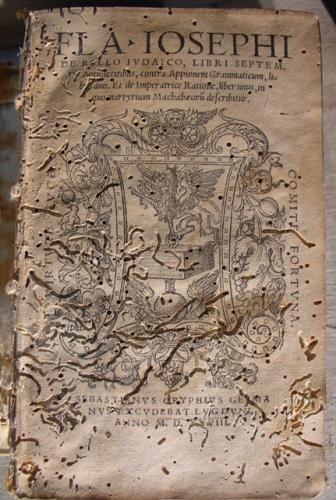 FLA· IOSEPHI
DE BELLO IVDAICO, LIBRI SEPTEM.
Antiquitatibus, contra Appionem Grammaticum, li-
duo. Et de Imperatrice Ratione, liber unus, in
quo martyrium Machabæorũ describitur.
COMITE FORTVNA
SEBASTIANVS GRYPHIVS GERMA
NVS EXCVDEBAT LVGDVNI,
ANNO M. D.